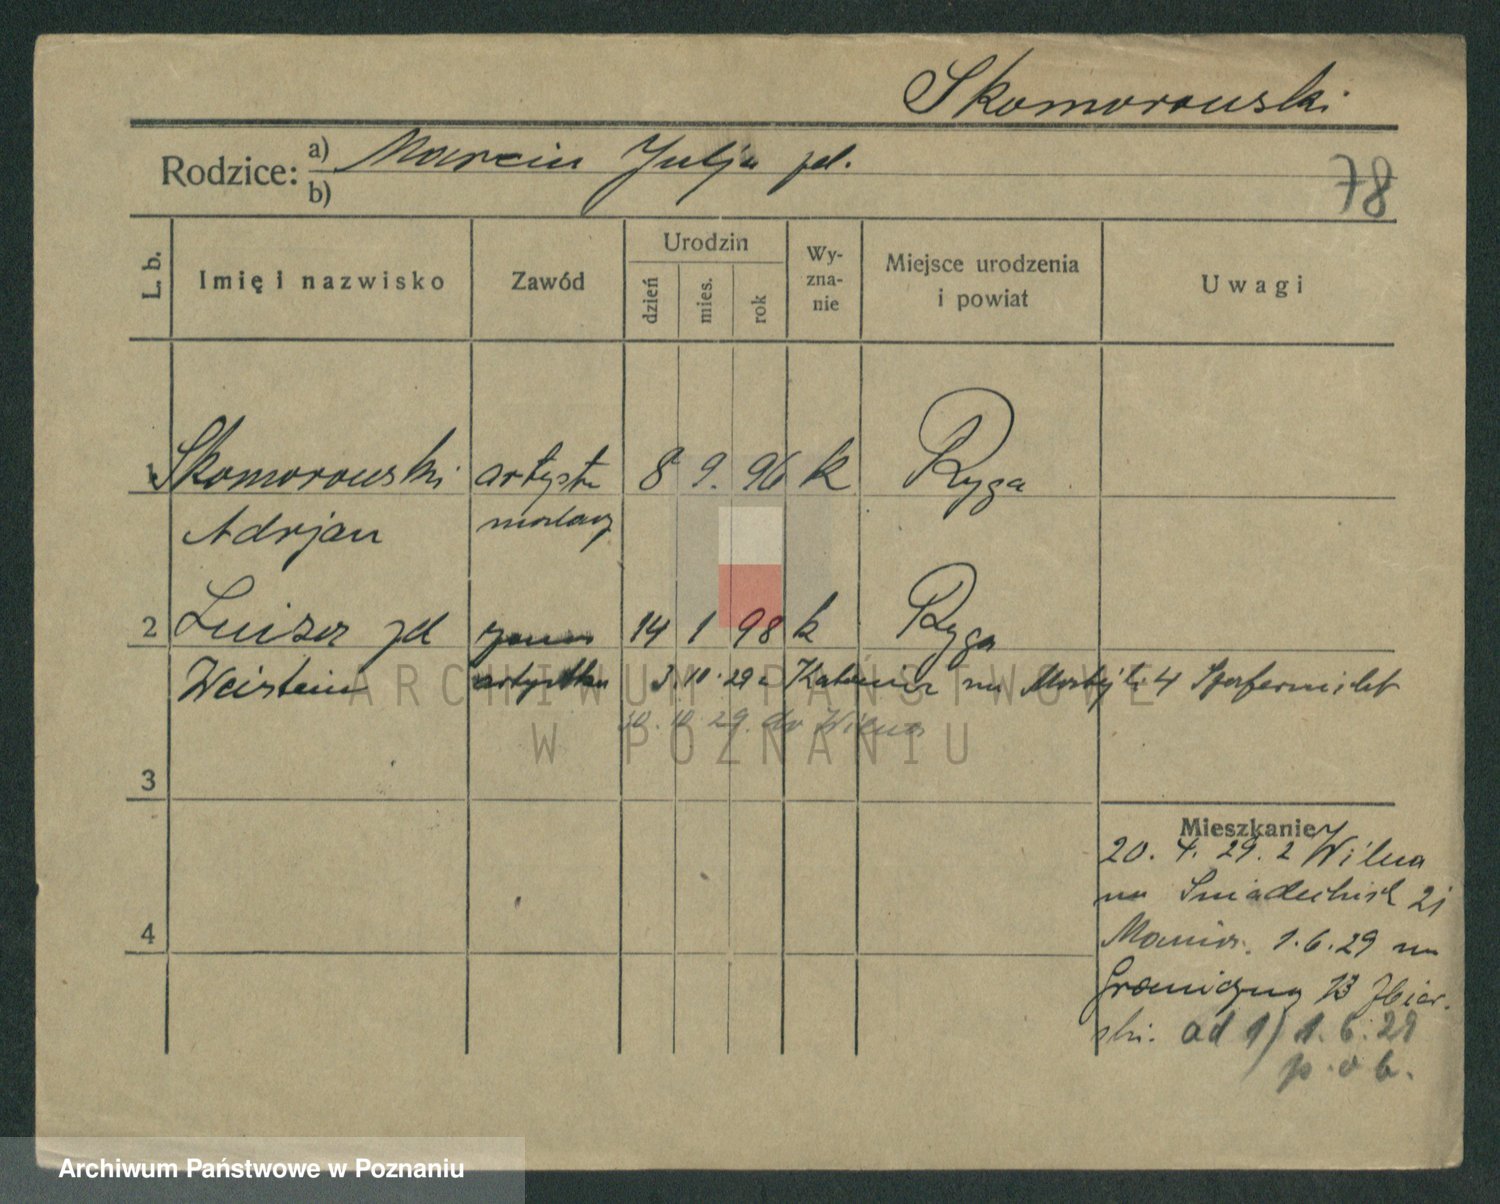 Skomorowski
Rodzice: a) Marcin Julja jd.
b)
78
L. b.
Imię i nazwisko
Zawód
Urodzin
dzień
mies.
rok
Wy-
zna-
nie
Miejsce urodzenia
i powiat
Uwagi
1 Skomorowski artysta 8 9. 96 k Ryga
Adrjan
2 Luiza jd 14 1 98 k Ryga
Weistein artystka 3. 10. 29 z na 4
10. 10 29. do Wilna
ARCHIWUM PAŃSTWOWE
W POZNANIU
3
Mieszkanie
20. 4. 29. z Wilna
na Śniadeckich 21
1.6.29 na
Graniczną 13
ski. ad 1) 1.6.29
p.o b.
4
Archiwum Państwowe w Poznaniu